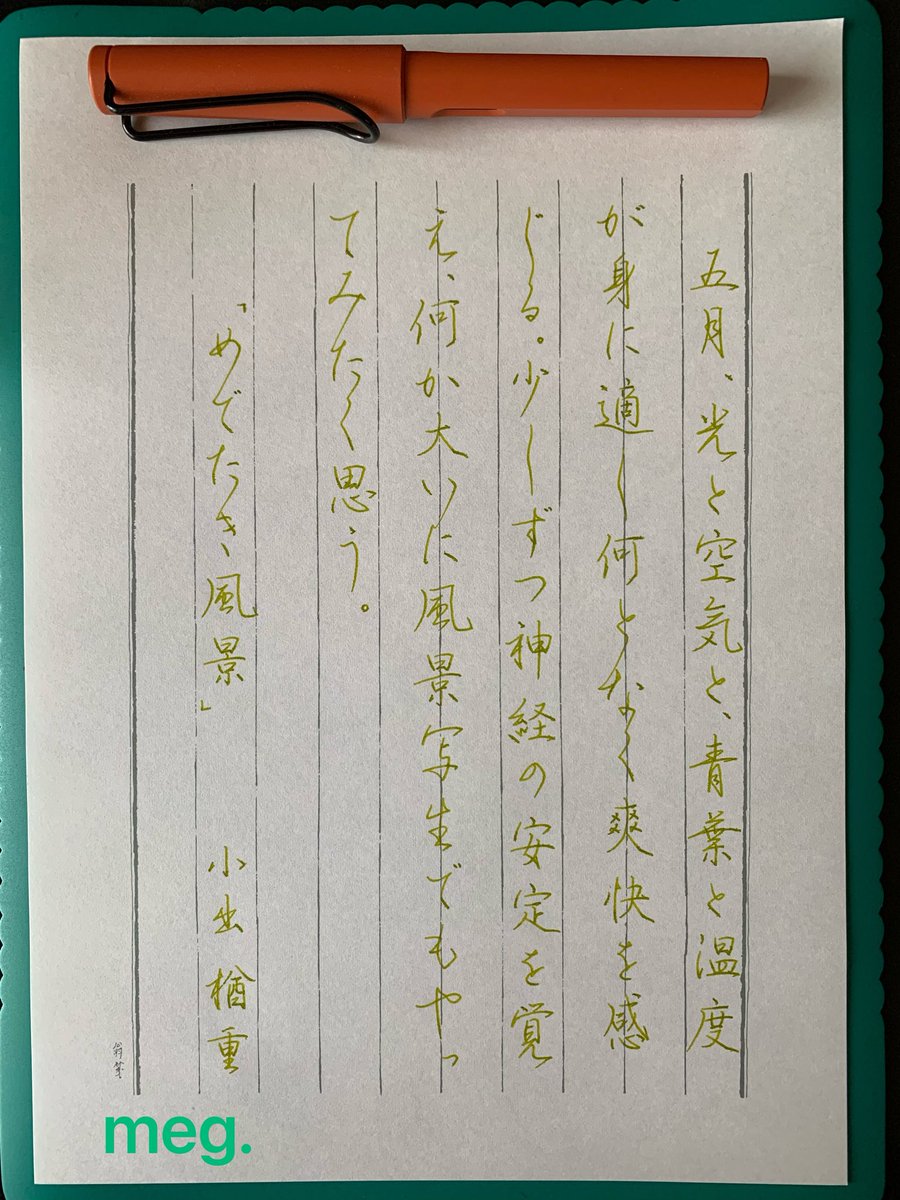 五月、光と空気と、青葉と温度
が身に適し何となく爽快を感
じる。少しずつ神経の安定を覚
え、何か大いに風景写生でもやっ
てみたく思う。
「めでたき風景」 小出楢重
meg.